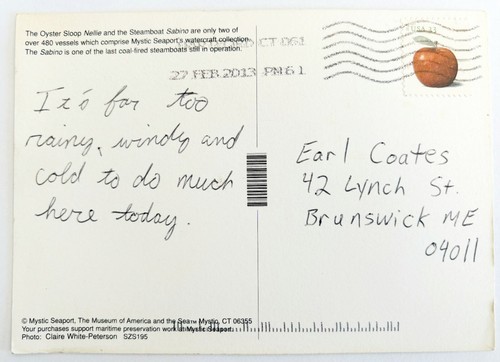 The Oyster Sloop Nellie and the Steamboat Sabino are only two of
over 480 vessels which comprise Mystic Seaport's watercraft collection.
The Sabino is one of the last coal-fired steamboats still in operation.
CT 061
27 FEB 2013 PM 6 1
It's far too
rainy, windy and
cold to do much
here today.
Earl Coates
42 Lynch St.
Brunswick ME
04011
© Mystic Seaport, The Museum of America and the Sea™ Mystic, CT 06355
Your purchases support maritime preservation work at Mystic Seaport.
Photo: Claire White-Peterson SZS195